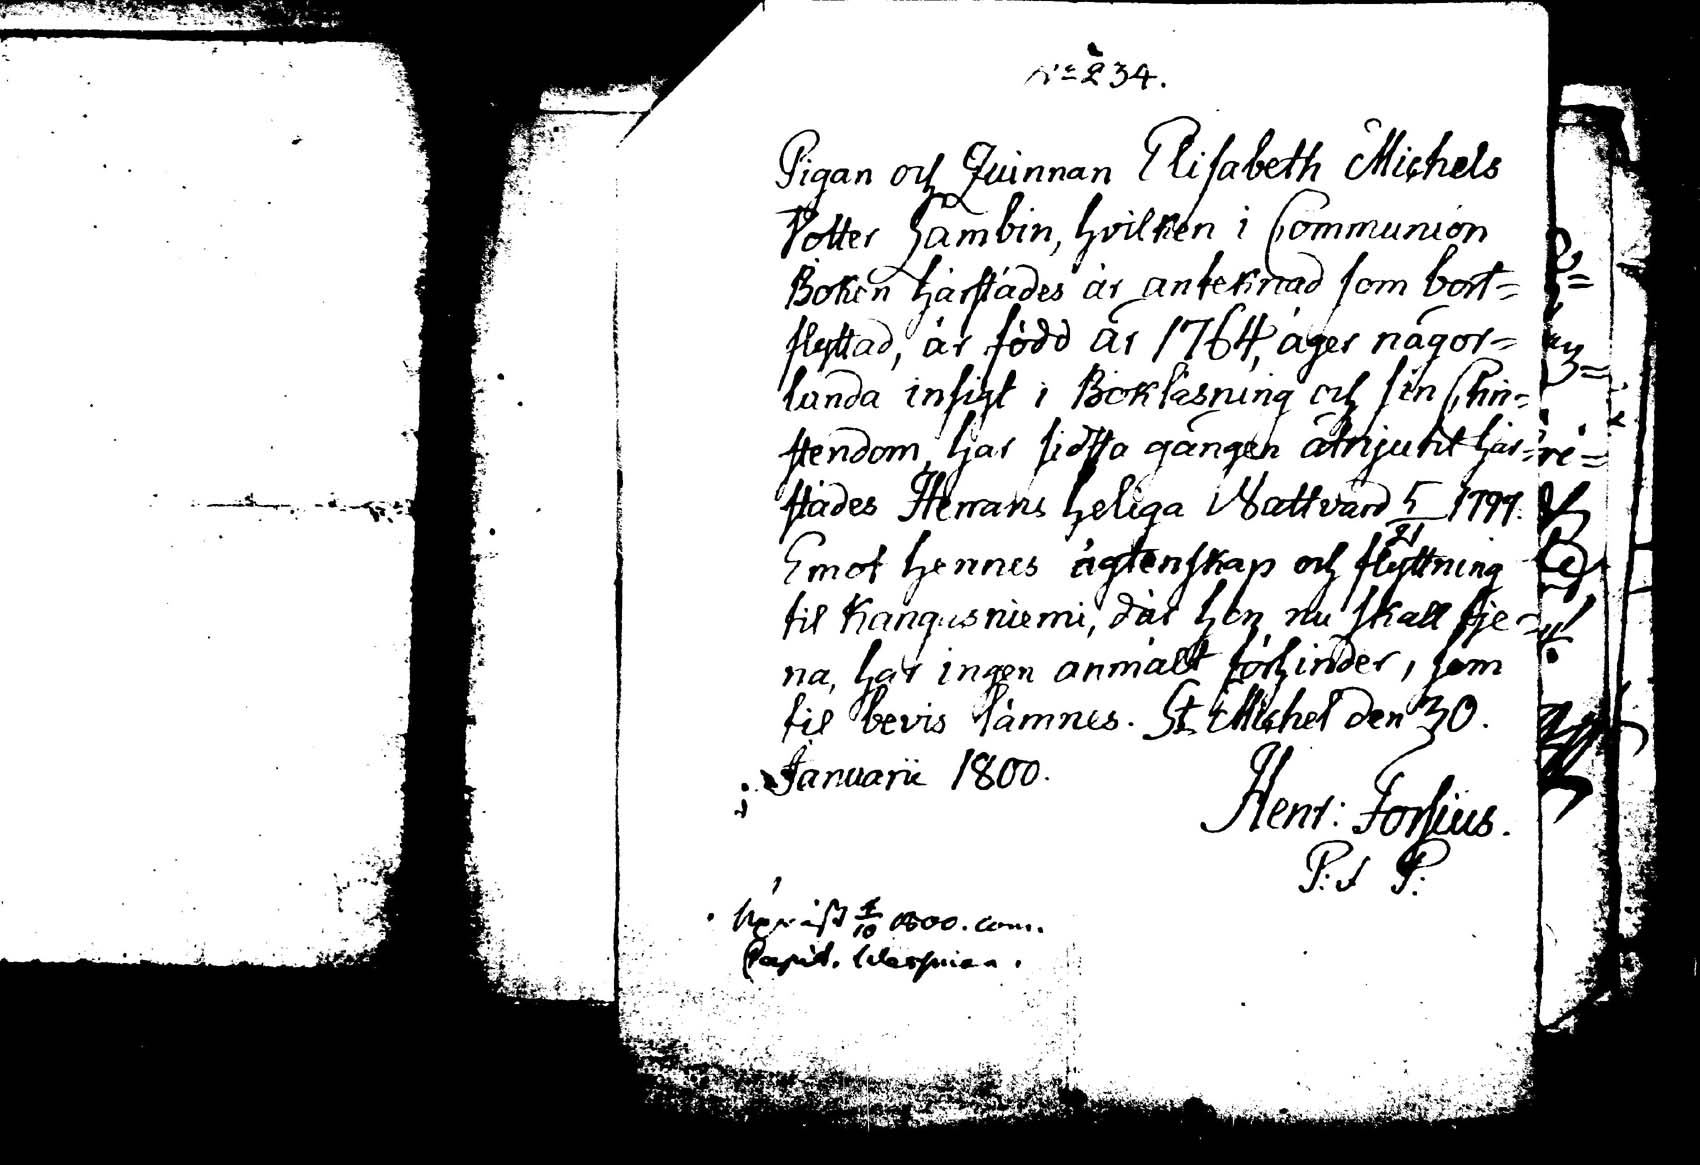 No 234.
Pigan och Quinnan Elisabeth Michels
Dotter Hämbin, hvilken i Communion
Boken härstädes är anteknad som bort=
flyttad, är född år 1764, äger någor=
lunda insigt i Bokläsning och sin Chri=
stendom, har sidsta gången åtnjutit här=
städes Herrans heliga Nattvard 5/21 1797.
Emot hennes ägtenskap och flyttning
til Kangasniemi, där hon nu skall tje=
na, har ingen anmält förhinder, som
til bevis lämnes. St. Michel den 30.
Januarii 1800.
Henr: Forsius.
P: s P:
4/10 1800. com.